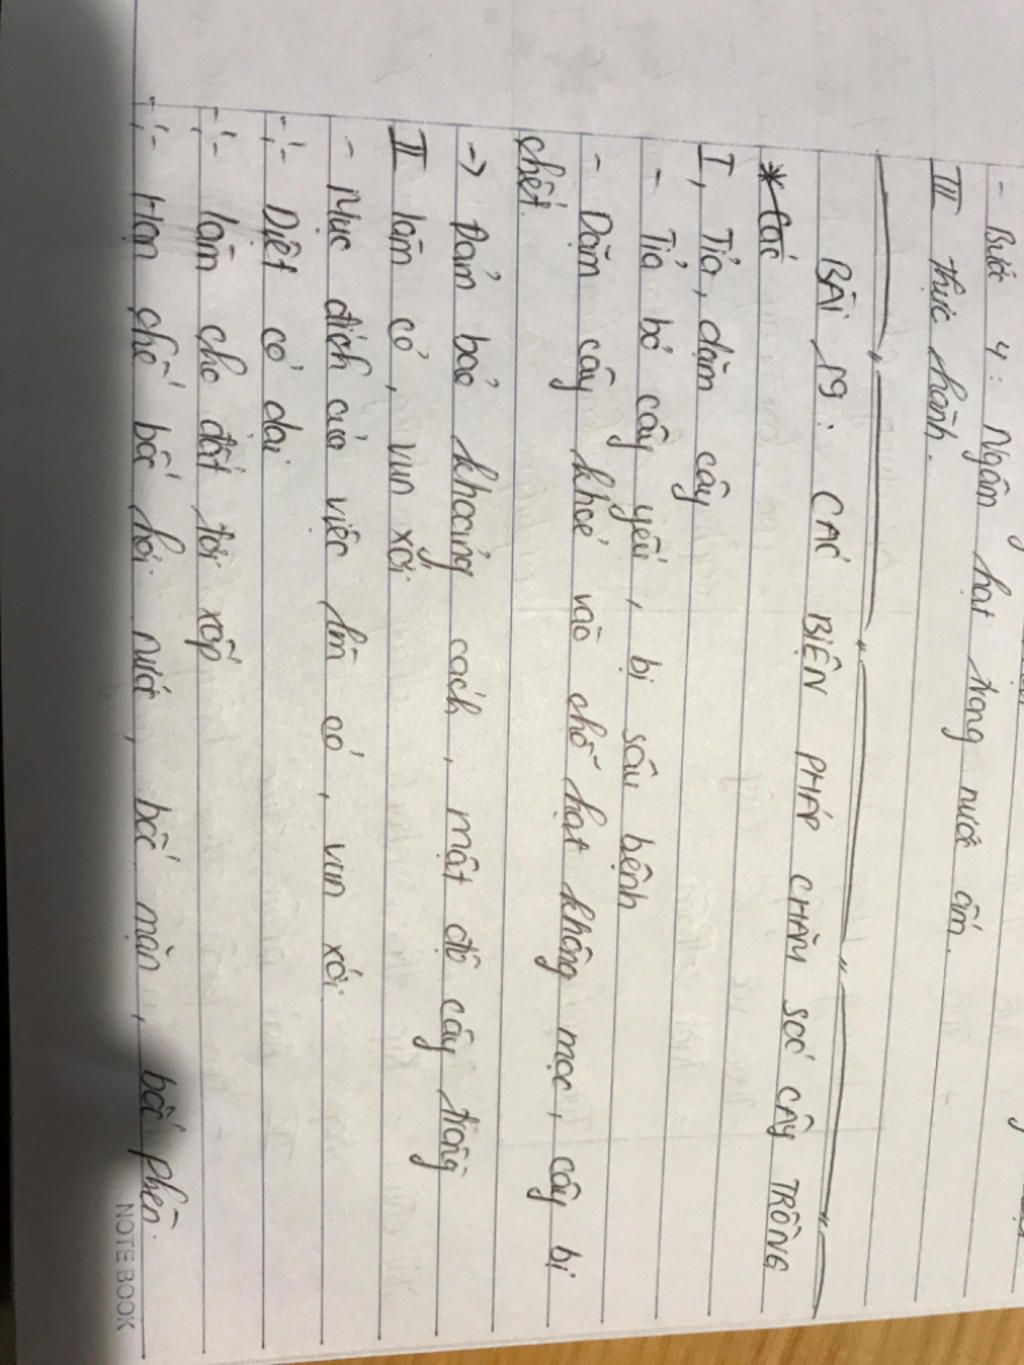 - Bước 4: Ngâm hạt trong nước ấm.
III Thực hành.
BÀI 19: CÁC BIỆN PHÁP CHĂM SÓC CÂY TRỒNG
* Các
I, Tỉa, dặm cây
- Tỉa bỏ cây yếu, bị sâu bệnh
- Dặm cây khoẻ vào chỗ hạt không mọc, cây bị
chết.
-> Đảm bảo khoảng cách, mật độ cây trồng
II làm cỏ, vun xới
- Mục đích của việc làm cỏ, vun xới
-:- Diệt cỏ dại
-:- làm cho đất tơi xốp
-:- Hạn chế bốc hơi nước, bốc mặn, bốc phèn.
NOTE BOOK